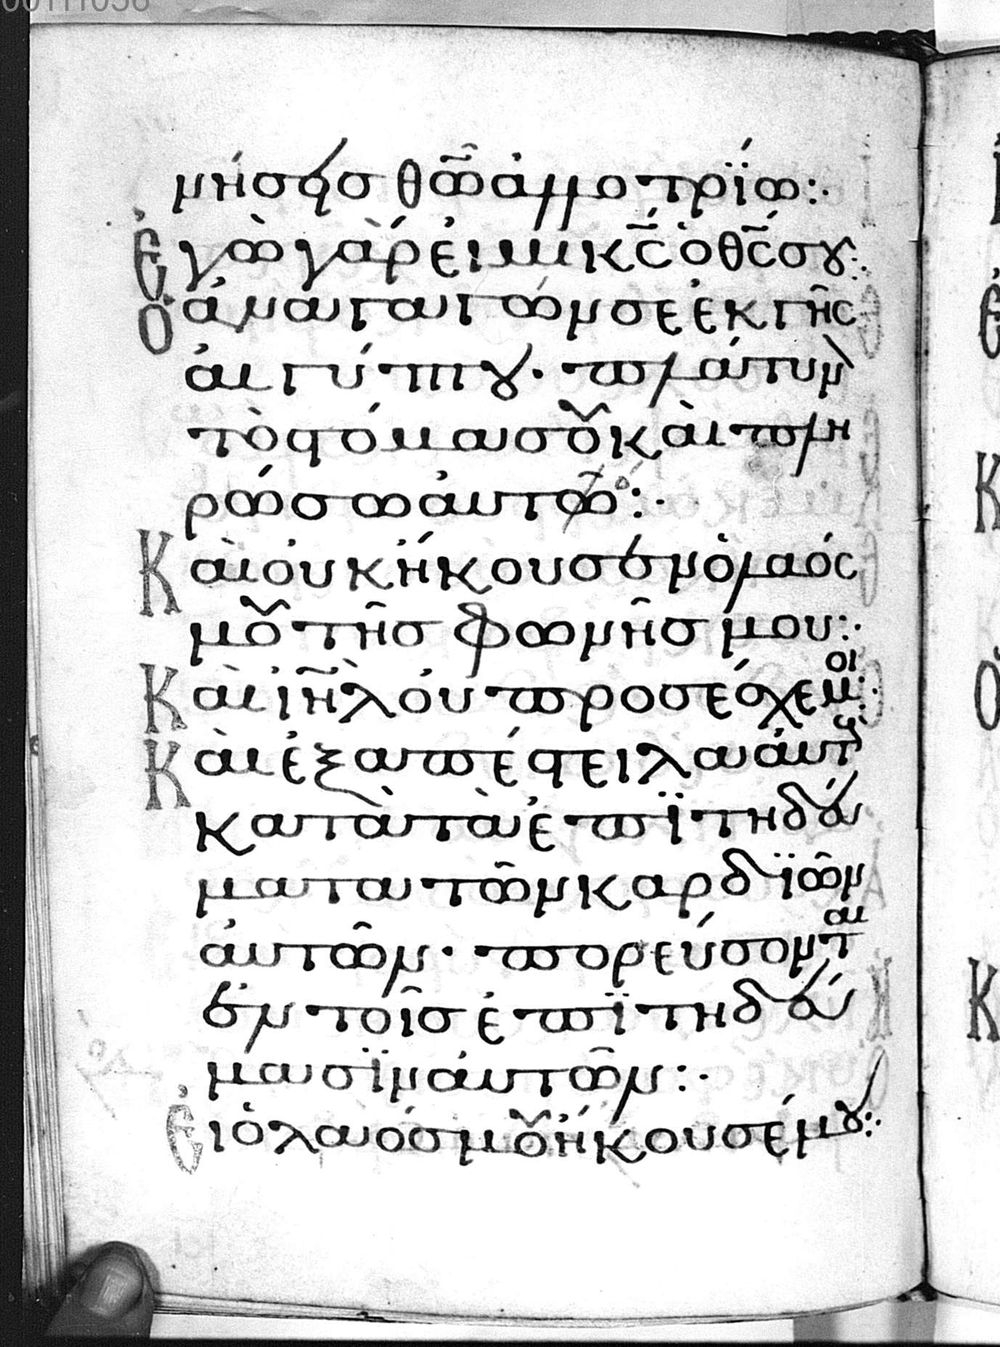 00111038
νήσεις θ͞ω ἀλλοτρίω:.
Ἐγὼ γὰρ εἰμι κ͞ς ὁ θ͞ς σου:.
Ὁ ἀναγαγών σε ἐκ γῆς
ἀιγύπτου· πλάτυν
τὸ στόμα σου κὰι πλη
ρώσω ἀυτό:.
Κὰι οὐκ ἤκουσεν ὁ λαός
μου τῆς φωνῆς μου:.
Κὰι ἰ͞ηλ οὐ προσέσχε μοι:.
Κὰι ἐξαπέστειλα ἀυτοὺς
κατὰ τὰ ἐπϊτηδεύ
ματα τῶν καρδϊῶν
ἀυτῶν· πορεύσονται
ἐν τοῖς ἐπϊτηδεύ
μασϊν ἀυτῶν:.
Εἰ ὁ λαός μου ἤκουσέ μου:.